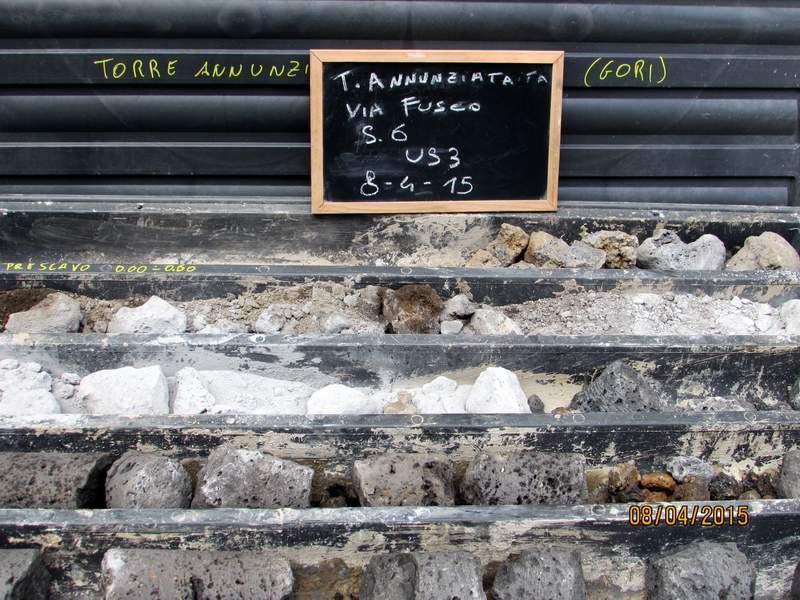 TORRE ANNUNZI (GORI)
T. ANNUNZIATA TA
VIA FUSCO
S. 6
US3
8-4-15
PRESCAVO 0.00-0.60
08/04/2015